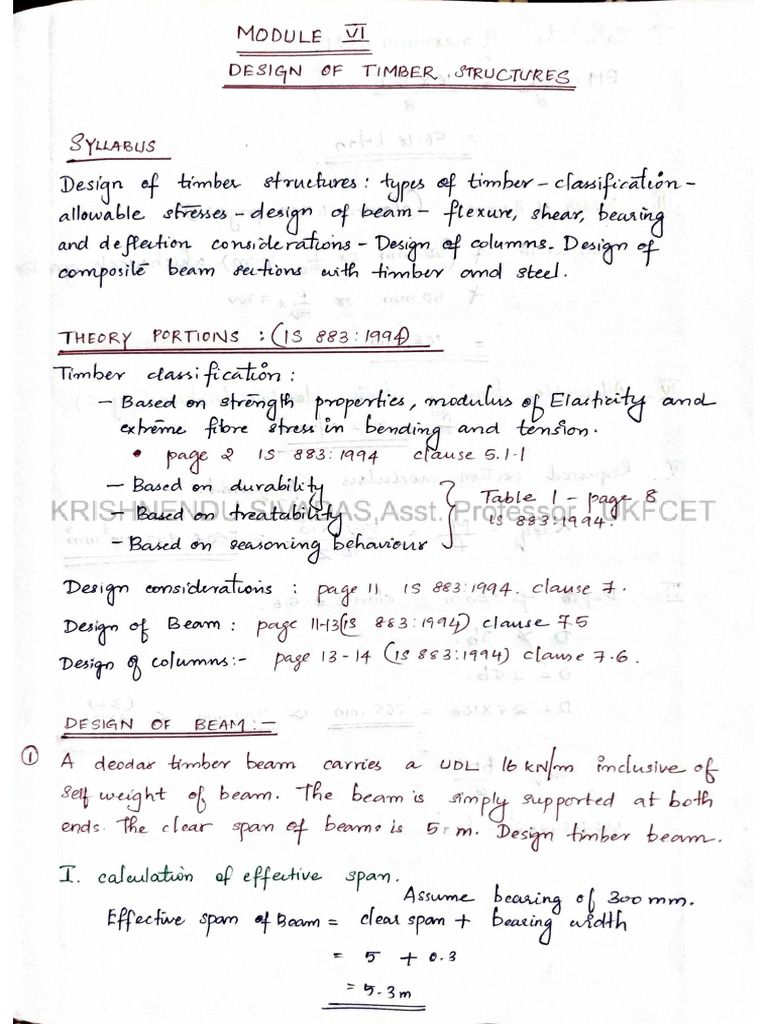 MODULE VI
DESIGN OF TIMBER STRUCTURES
SYLLABUS
Design of timber structures: types of timber - classification -
allowable stresses - design of beam - flexure, shear, bearing
and deflection considerations - Design of columns. Design of
composite beam sections with timber and steel.
THEORY PORTIONS : (IS 883:1994)
Timber classification:
- Based on strength properties, modulus of Elasticity and
extreme fibre stress in bending and tension.
• page 2 IS 883:1994 clause 5.1.1
- Based on durability
- Based on treatability
- Based on seasoning behaviour
Table 1 - page 8
IS 883:1994.
KRISHNENDU SIVADAS,Asst. Professor, UKFCET
Design considerations : page 11 IS 883:1994. clause 7.
Design of Beam : page 11-13 (IS 883:1994) clause 7.5
Design of columns:- page 13-14 (IS 883:1994) clause 7.6.
DESIGN OF BEAM:-
① A deodar timber beam carries a UDL 16 kN/m inclusive of
self weight of beam. The beam is simply supported at both
ends. The clear span of beam is 5 m. Design timber beam.
I. calculation of effective span.
Assume bearing of 300mm.
Effective span of Beam = clear span + bearing width
= 5 + 0.3
= 5.3m